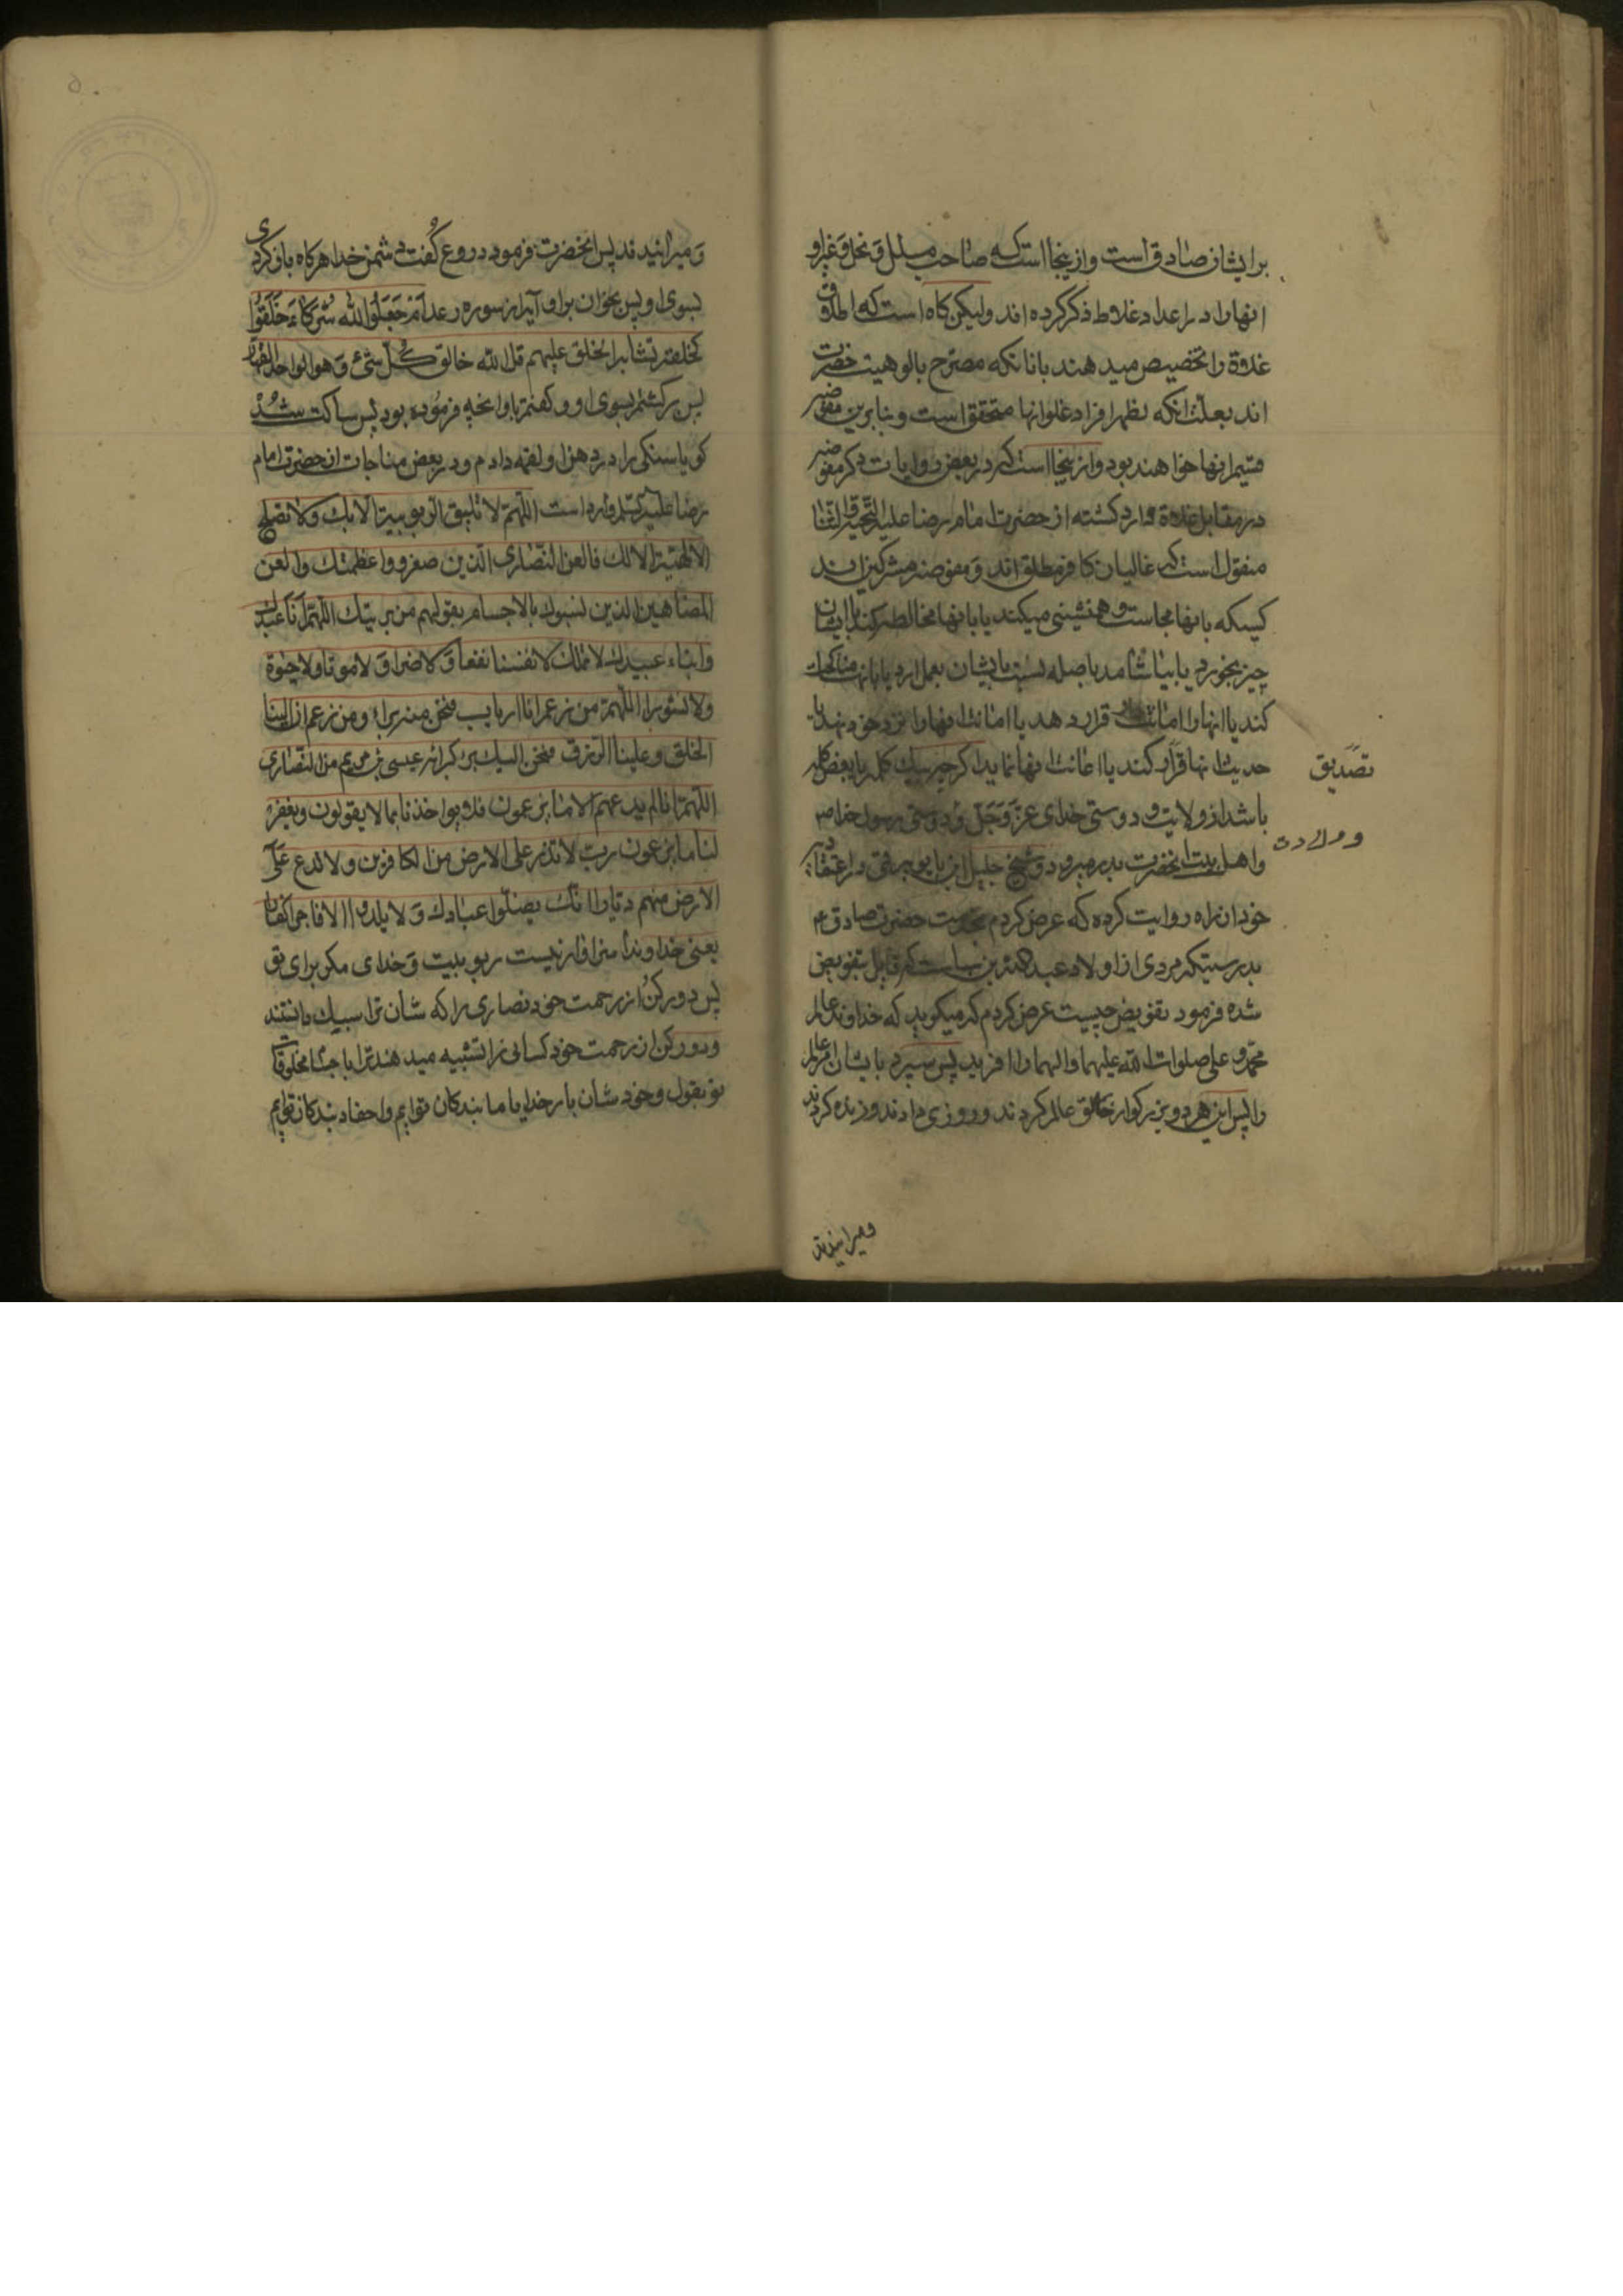 برایشان صادق است و ازینجا است که صاحب ملل و نحل و غیر او
انها را در اعداد غلاط ذکر کرده اند ولیکن کاه است که اطلاق
غلاة را تخصیص میدهند بانانکه مصرح بالوهیت حضرت
اند بعلت انکه اظهر افراد غلو انها متحقق است و بنابرین مفوضه
قسیم انها خواهند بود و ازینجا است که در بعض روایات ذکر مفوضه
در مقابل غلاة وارد کشته از حضرت امام رضا علیه التحیة و الثنا
منقول است که غالیان کافر مطلق اند و مفوضه مشرکین اند
کسیکه بانها مجالست و همنشینی میکند یا بانها مخالطه کند یا با ایشان
چیز بخورد یا بیاشامد یا صله نسبت بایشان بعمل ارد یا بانها مناکحات
کند یا انها را امانت قرار دهد یا امانت انها را نزد خود نهد یا
حدیث انها قرار کند یا اعانت انها نماید اکر چه بیک کلمه یا بعض کلمه
تصدیق
باشد از ولایت و دوستی خدای عز و جل و دوستی رسول خدا ص
و اهل بیت انحضرت بدر میرود و شیخ جلیل ابن بابویه قمی در اعتقاد
خود از زراره روایت کرده که عرض کردم بخدمت حضرت صادق ع
بدرستیکه مردی از اولاد عبد الله بن سبا است که قایل بتفویض
شده فرمود تفویض چیست عرض کردم که میکوید که خداوند عالم
محمد و علی صلوات الله علیهما و الهما را افرید پس سپرد بایشان امر عالم
را پس این هر دو بزرکوار خالق عالم کردند و روزی دادند و زنده کردند
و میرانیدند
و میرانیدند پس انحضرت فرمود دروغ گفت دشمن خدا هرکاه باز کردی
بسوی او پس بخوان براو آیه از سوره رعد ام جعلوا لله شرکاء خلقوا
کخلقه فتشابه الخلق علیهم قل الله خالق کل شئ و هو الواحد القهار
پس برکشتم بسوی او و کفتم باو انچه فرموده بود پس ساکت شد
کویا سنکی را در دهن او لقمه دادم و در بعض مناجات ان حضرت امام
رضا علیه السلم وارد است اللهم لا تلیق الربوبیة الا بک و لا تصلح
الالهیة الا لک فالعن النصاری الذین صغروا عظمتک و العن
المضاهین الذین لقولهم من بریتک اللهم انا عبیدک
و ابناء عبیدک لا نملک لانفسنا نفعا و لا ضرا و لا موتا و لا حیوة
و لا نشورا اللهم من زعم انا ارباب فنحن منه براء و من زعم ان الینا
الخلق و علینا الرزق فنحن الیک منه براء کبرائة عیسی بن مریم من النصاری
اللهم انا لم ندعهم الی ما یزعمون فلا تواخذنا بما یقولون و یغفر
لنا ما یزعمون رب لا تذر علی الارض من الکافرین و لا تدع علی
الارض منهم دیارا انک یضلوا عبادک و لا یلدوا الا فاجرا کفارا
یعنی خداوندا سزاوار نیست ربوبیت و خدای مکر برای تو
پس دور کن از رحمت خود نصاری را که شان ترا سبک دانستند
و دور کن از رحمت خود کسانی را تشبیه میدهند ترا باجسام مخلوقات
تو بقول خود شان بار خدایا ما بندکان توایم و احفاد بندکان توایم